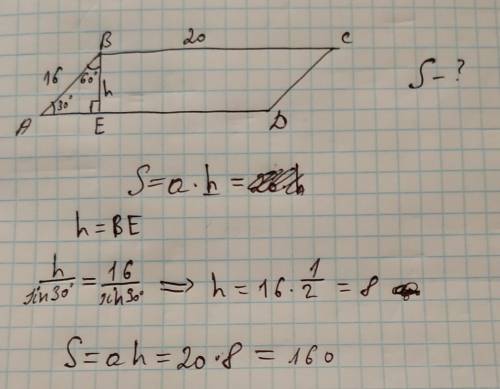 B 20 C
16 60° h
30°
A E D
S - ?
S = a · h =
h = BE
h/sin30° = 16/sin90° ⟹ h = 16 · 1/2 = 8
S = ah = 20 · 8 = 160